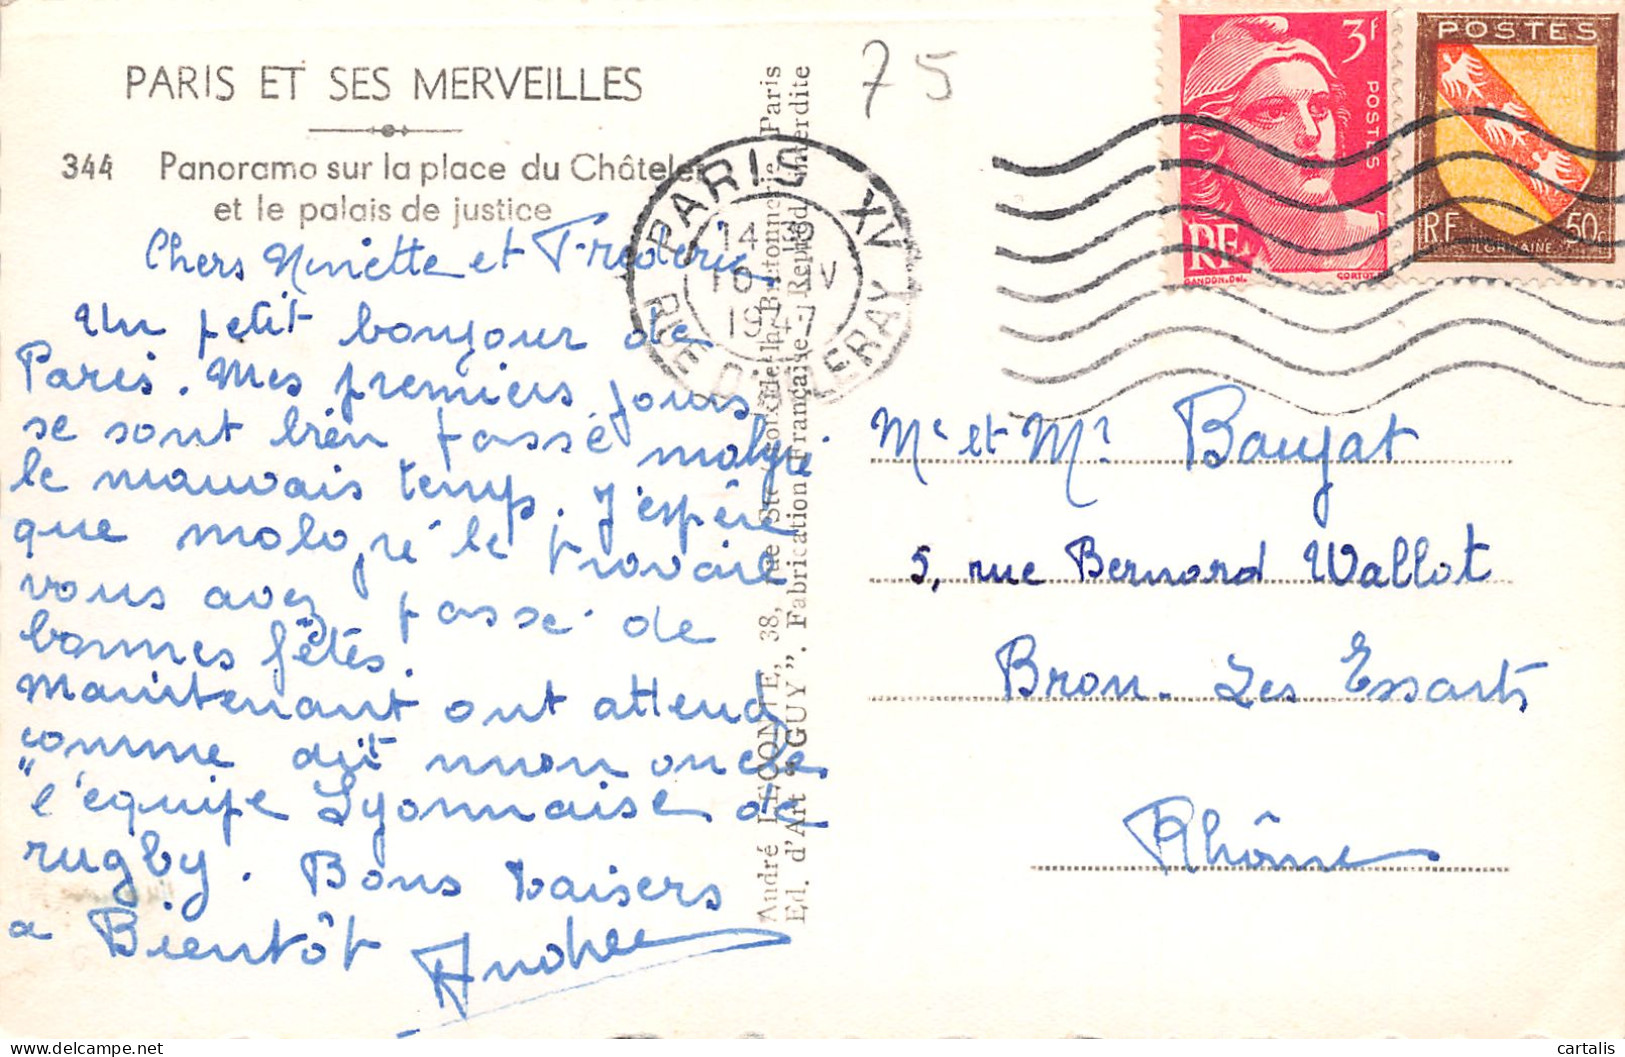 PARIS ET SES MERVEILLES
344 Panorama sur la place du Châtelet
et le palais de justice
Chers Ninette et Frédéric
Un petit bonjour de
Paris. Mes premiers jours
se sont bien passé malgré
le mauvais temps. J'espère
que malgré le travail
vous avez passé de
bonnes fêtes.
Maintenant ont attend
comme dit mon oncle
"l'équipe Lyonnaise de
rugby. Bons baisers
a Bientôt Andrée
André LECONTE, 38, rue Ste-Croix-de-la-Bretonnerie, Paris
Ed. d'Art "GUY". Fabrication Française. Reprod. interdite
75
PARIS XV
14
IV
1947
RUE D'ALLERAY
3f
POSTES
RF
GANDON.Del.
CORTOT
POSTES
RF
50c
LORRAINE
Me et Mr Baujat
5, rue Bernard Wallot
Bron. Les Essarts
Rhône
cartalis